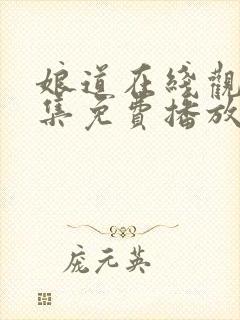 娘道在綫觀
集免費播放
庞元英